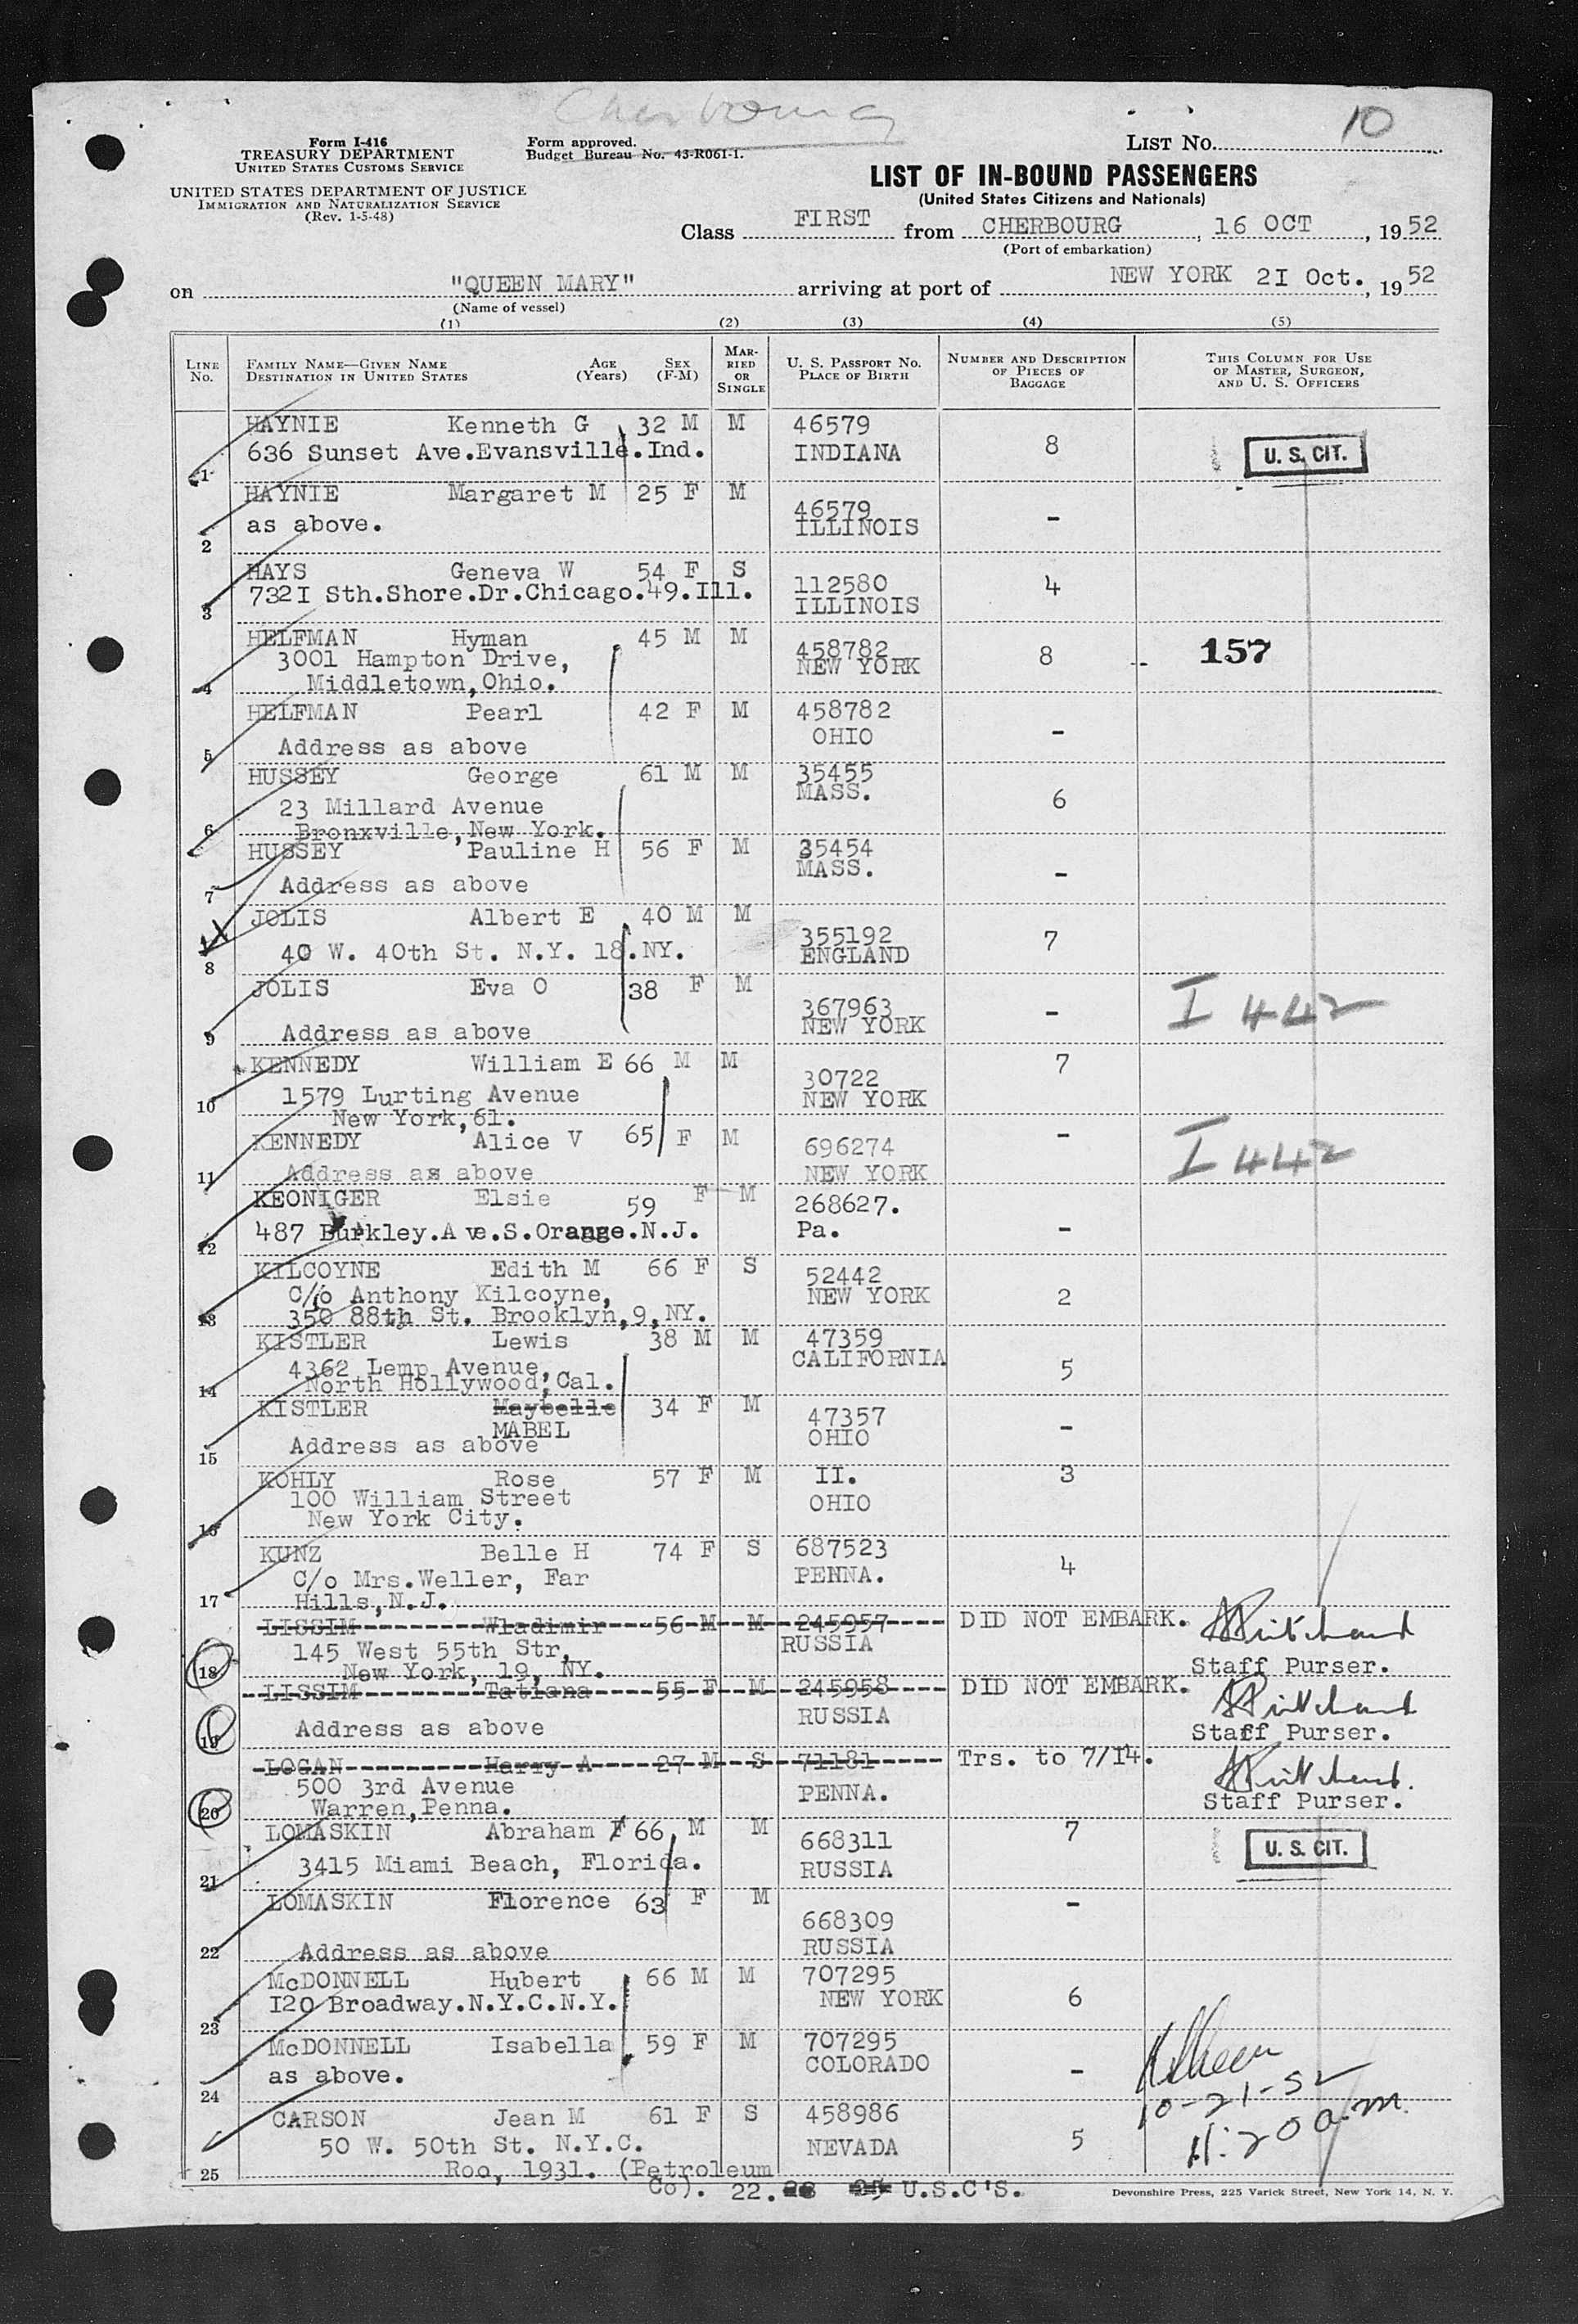 Cherbourg
10
Form I-416
TREASURY DEPARTMENT
UNITED STATES CUSTOMS SERVICE
UNITED STATES DEPARTMENT OF JUSTICE
IMMIGRATION AND NATURALIZATION SERVICE
(Rev. 1-5-48)
Form approved.
Budget Bureau No. 43-R061-1.
LIST No.
LIST OF IN-BOUND PASSENGERS
(United States Citizens and Nationals)
Class FIRST from CHERBOURG, 16 OCT, 1952
(Port of embarkation)
on "QUEEN MARY" arriving at port of NEW YORK 2I Oct., 1952
(Name of vessel)
(1) (2) (3) (4) (5)
LINE No. FAMILY NAME—GIVEN NAME DESTINATION IN UNITED STATES AGE (Years) SEX (F-M) MARRIED OR SINGLE U. S. PASSPORT No. PLACE OF BIRTH NUMBER AND DESCRIPTION OF PIECES OF BAGGAGE THIS COLUMN FOR USE OF MASTER, SURGEON, AND U. S. OFFICERS
HAYNIE Kenneth G 32 M M 46579 8
636 Sunset Ave.Evansville.Ind. INDIANA U. S. CIT.
1
HAYNIE Margaret M 25 F M 46579 -
as above. ILLINOIS
2
HAYS Geneva W 54 F S 112580 4
732I Sth.Shore.Dr.Chicago.49.Ill. ILLINOIS
3
HELFMAN Hyman 45 M M 458782 8 157
3001 Hampton Drive, NEW YORK
Middletown,Ohio.
4
HELFMAN Pearl 42 F M 458782 -
Address as above OHIO
5
HUSSEY George 61 M M 35455 6
23 Millard Avenue MASS.
Bronxville,New York.
6
HUSSEY Pauline H 56 F M 35454 -
Address as above MASS.
7
JOLIS Albert E 40 M M 355192 7
40 W. 40th St. N.Y. 18.NY. ENGLAND
8
JOLIS Eva O 38 F M 367963 - I 442
Address as above NEW YORK
9
KENNEDY William E 66 M M 30722 7
1579 Lurting Avenue NEW YORK
New York,61.
10
KENNEDY Alice V 65 F M 696274 - I 442
Address as above NEW YORK
11
KEONIGER Elsie 59 F M 268627. -
487 Burkley.Ave.S.Orange.N.J. Pa.
12
KILCOYNE Edith M 66 F S 52442 2
C/o Anthony Kilcoyne, NEW YORK
350 88th St. Brooklyn,9,NY.
13
KISTLER Lewis 38 M M 47359 5
4362 Lemp Avenue, CALIFORNIA
North Hollywood,Cal.
14
KISTLER Maybelle 34 F M 47357 -
MABEL OHIO
Address as above
15
KOHLY Rose 57 F M II. 3
100 William Street OHIO
New York City.
16
KUNZ Belle H 74 F S 687523 4
C/o Mrs.Weller, Far PENNA.
Hills,N.J.
17
LISSIM Wladimir 56 M M 245957 DID NOT EMBARK. Pritchard
145 West 55th Str, RUSSIA
New York, 19, NY. Staff Purser.
18
LISSIM Tatiana 55 F M 245958 DID NOT EMBARK. Pritchard
Address as above RUSSIA Staff Purser.
19
LOGAN Harry A 27 M S 71181 Trs. to 7/I4. Pritchard.
500 3rd Avenue PENNA.
Warren,Penna. Staff Purser.
20
LOMASKIN Abraham F 66 M M 668311 7 U. S. CIT.
3415 Miami Beach, Florida. RUSSIA
21
LOMASKIN Florence 63 F M 668309 -
Address as above RUSSIA
22
McDONNELL Hubert 66 M M 707295 6
I20 Broadway.N.Y.C.N.Y. NEW YORK
23
McDONNELL Isabella 59 F M 707295 -
as above. COLORADO
24
10-21-52
11:20 a.m.
CARSON Jean M 61 F S 458986 5
50 W. 50th St. N.Y.C. NEVADA
Roo, 1931. (Petroleum
25
Co). 22. 25 U.S.C'S.
Devonshire Press, 225 Varick Street, New York 14, N. Y.